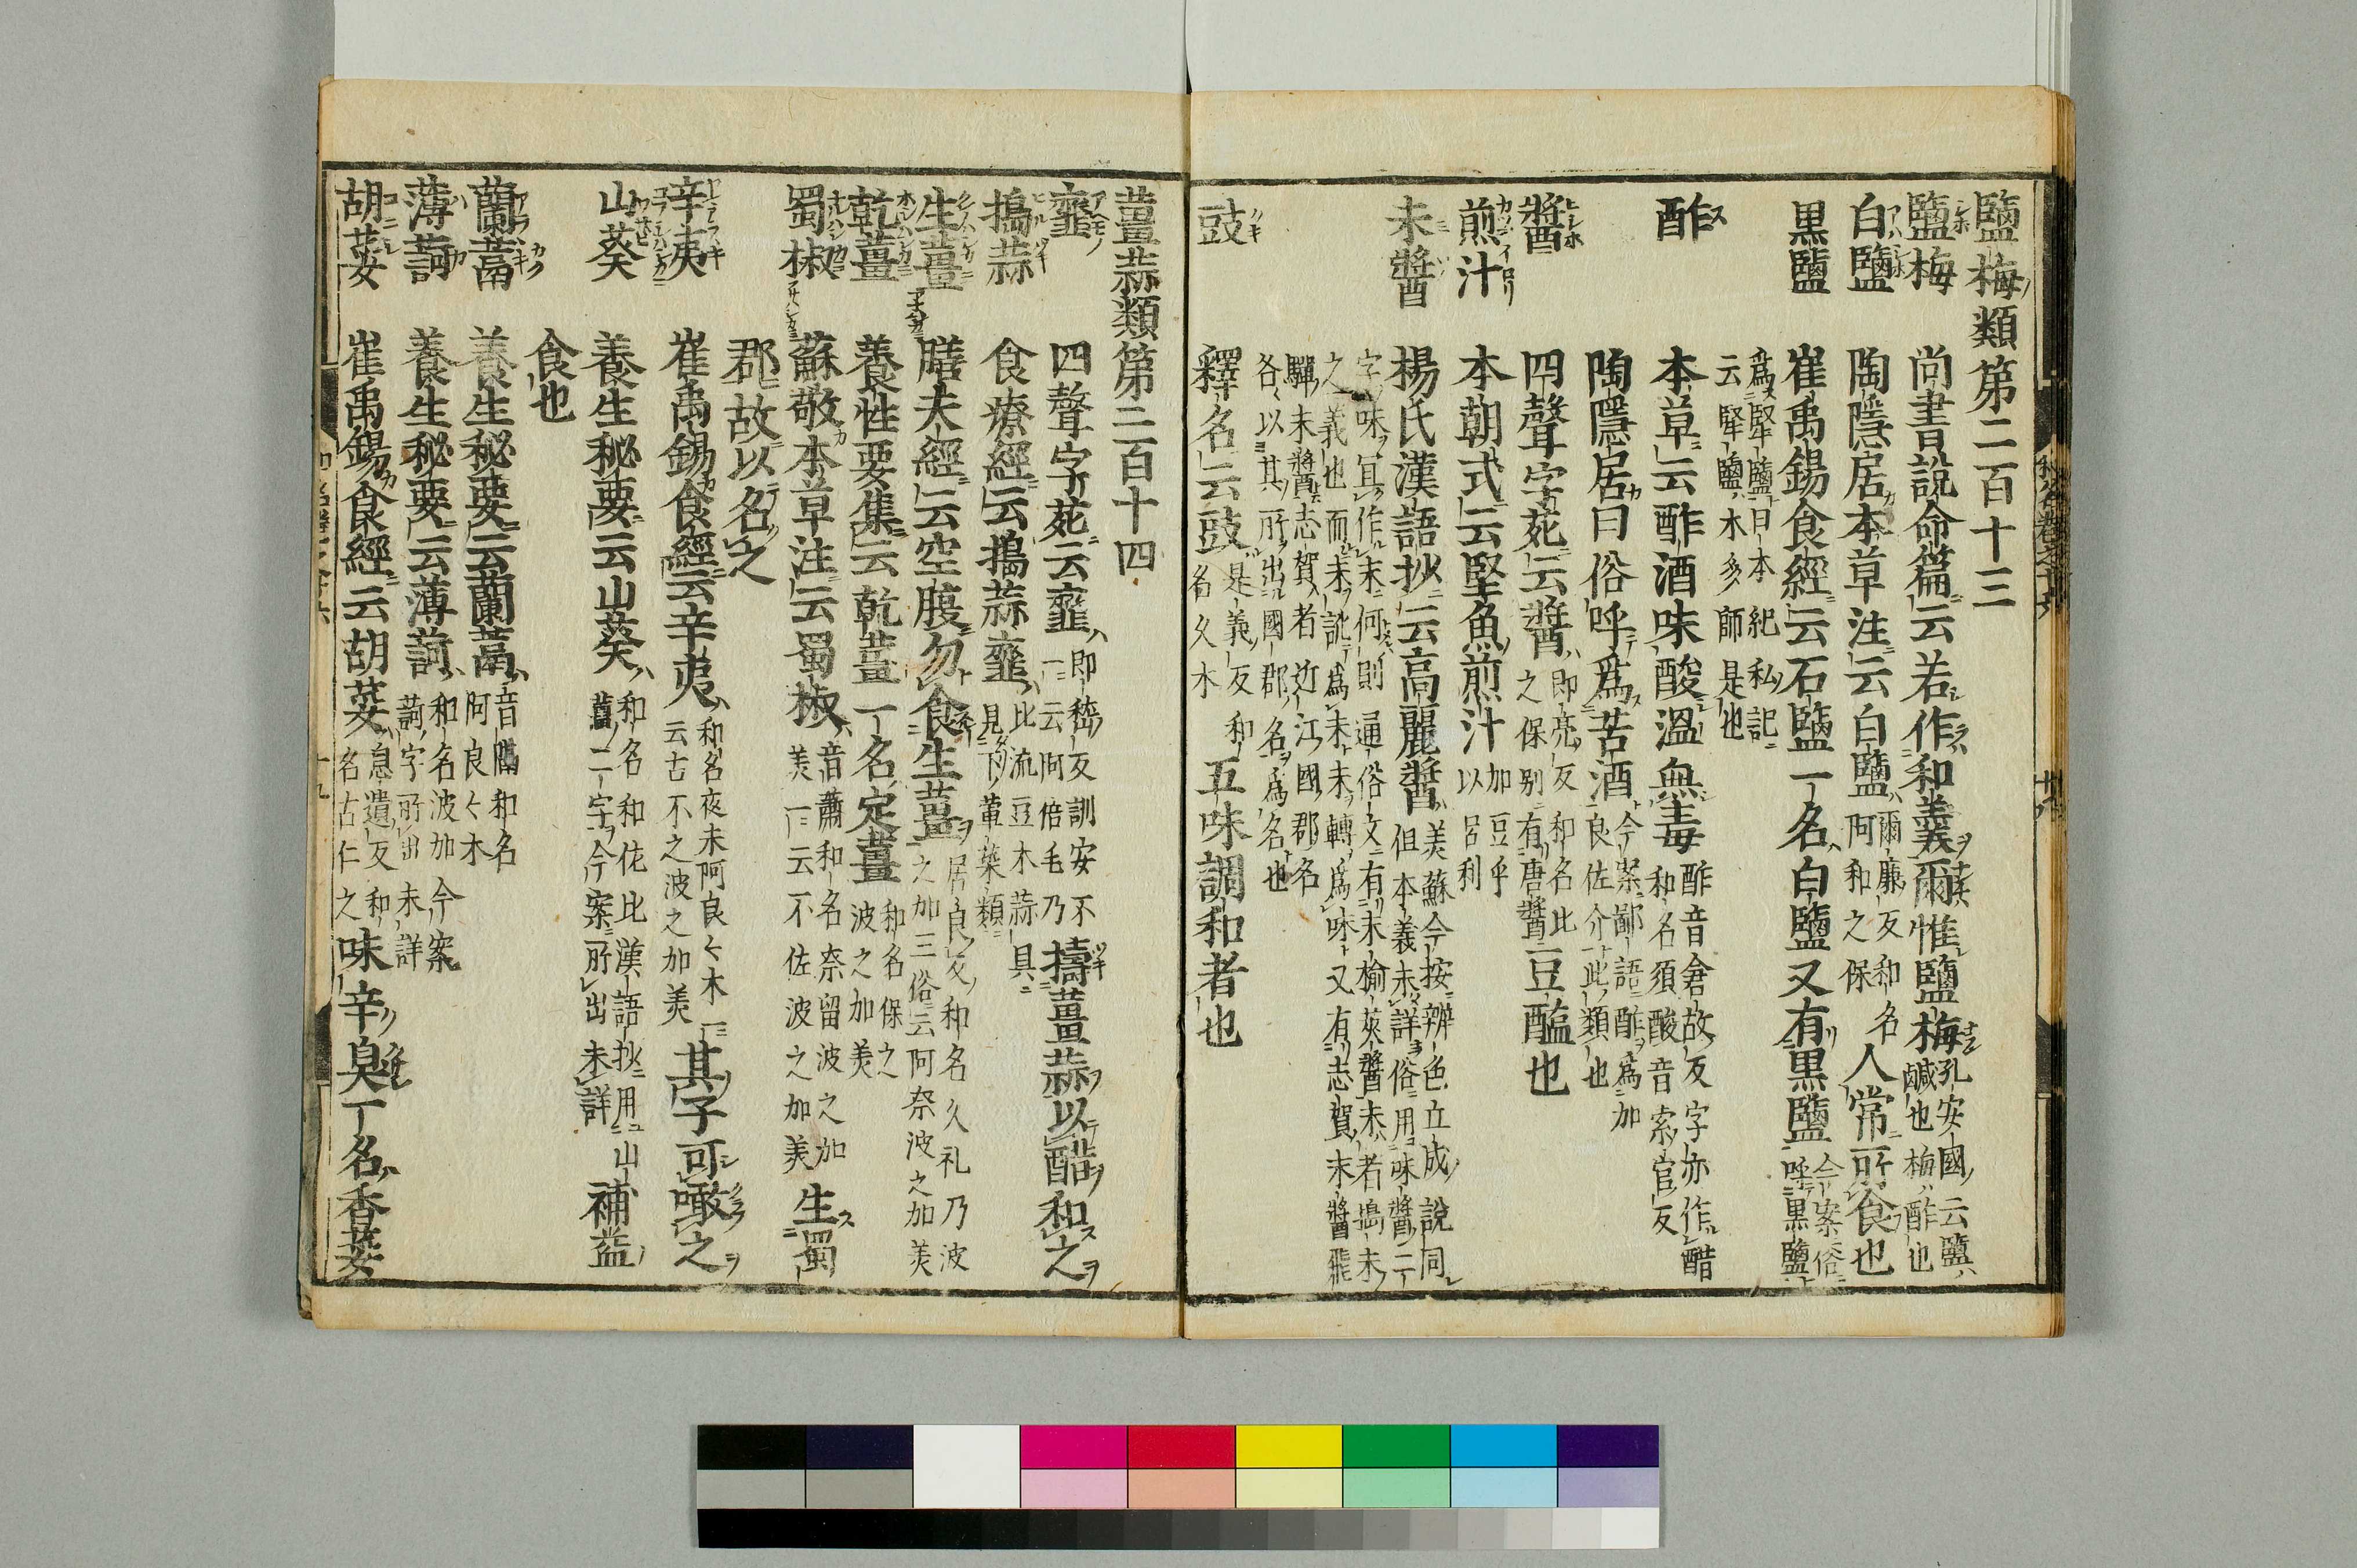 鹽梅類第二百十三
鹽梅 尚書說命篇云若作和羹爾惟鹽梅 孔安國云鹽 鹹也梅酢也
白鹽 陶隱居本草注云白鹽 爾廉反和名 阿和之保 人常所食也
黒鹽 崔禹錫食經云石鹽一名白鹽又有黒鹽 今案俗 呼黒鹽
爲堅鹽日本紀私記 云堅鹽木多師是也
酢 本草云酢酒味酸溫無毒 酢音倉故反字亦作醋 和名須酸音索官反
陶隱居曰俗呼爲苦酒 今案鄙語酢爲加 良佐介此類也
醬 四聲字苑云醬 即亮反和名比 之保別有唐醬 豆醢也
煎汁 本朝式云堅魚煎汁 加豆乎 以呂利
未醬 楊氏漢語抄云高麗醬 美蘇今按辨色立成說同 但本義未詳俗用味醬二
字味宜作末何則通俗文有末榆莢醬末者搗末 之義也而末訛爲未未轉爲味又有志賀末醬飛
驒末醬志賀者近江國郡名 各以其所出國郡名爲名也
豉 釋名云豉 是義反和 名久木 五味調和者也
薑蒜類第二百十四
韲 四聲字苑云韲 即嵆反訓安不 一云阿倍毛乃 擣薑蒜以醋和之
搗蒜 食療經云搗蒜韲 比流豆木蒜具 見下葷菜類
生薑 膳夫經云空腹勿食生薑 居良反和名久礼乃波 之加三俗云阿奈波之加美
乾薑 養性要集云乾薑一名定薑 和名保之 波之加美
蜀椒 蘇敬本草注云蜀椒 音蕭和名奈留波之加 美一云不佐波之加美 生蜀
郡故以名之
辛夷 崔禹錫食經云辛夷 和名夜末阿良々木一 云古不之波之加美 其子可噉之
山葵 養生秘要云山葵 和名和佐比漢語抄用山 薑二字今案所出未詳 補益
食也
蘭蒚 養生秘要云蘭蒚 音隔和名 阿良々木
薄訶 養生秘要云薄訶 和名波加今案 訶字所出未詳
胡荽 崔禹錫食經云胡荽 息遺反和 名古仁之 味辛臭一名香荽